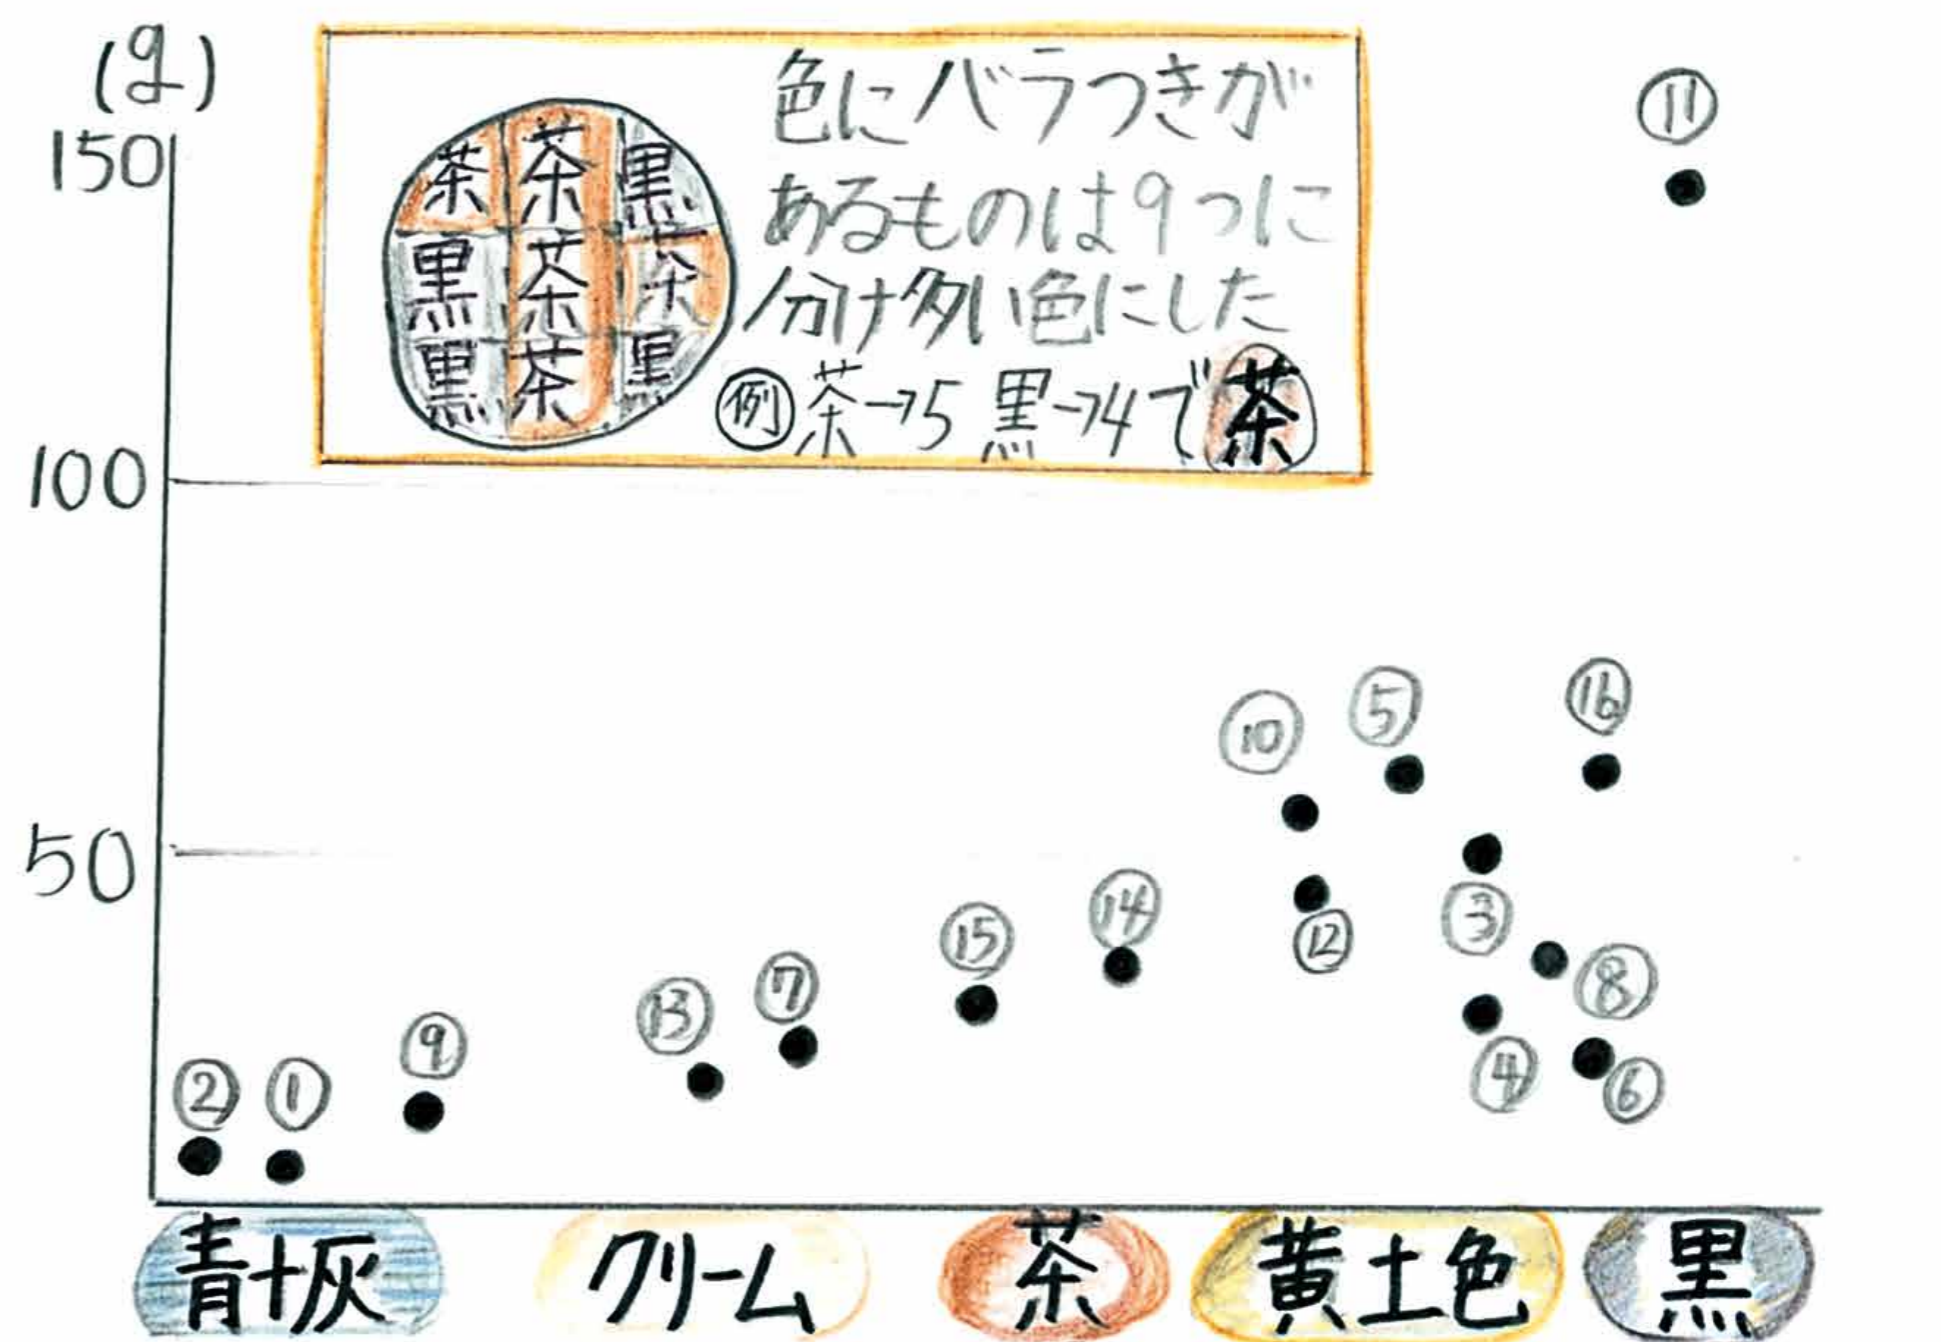 (g)
150
100
50
茶 茶 黒
黒 茶 茶
黒 茶 黒
色にバラつきが
あるものは9つに
分け多い色にした
例 茶→5 黒→4で茶
⑪
⑩
⑤
⑯
③
⑫
⑧
④
⑥
⑭
⑮
⑦
⑬
⑨
②
①
青+灰
クリーム
茶
黄土色
黒